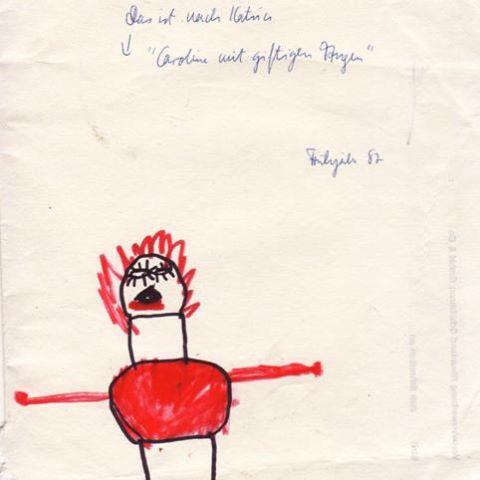 Das ist nach Katrin
"Caroline mit giftigen Augen"
Frühjahr 82